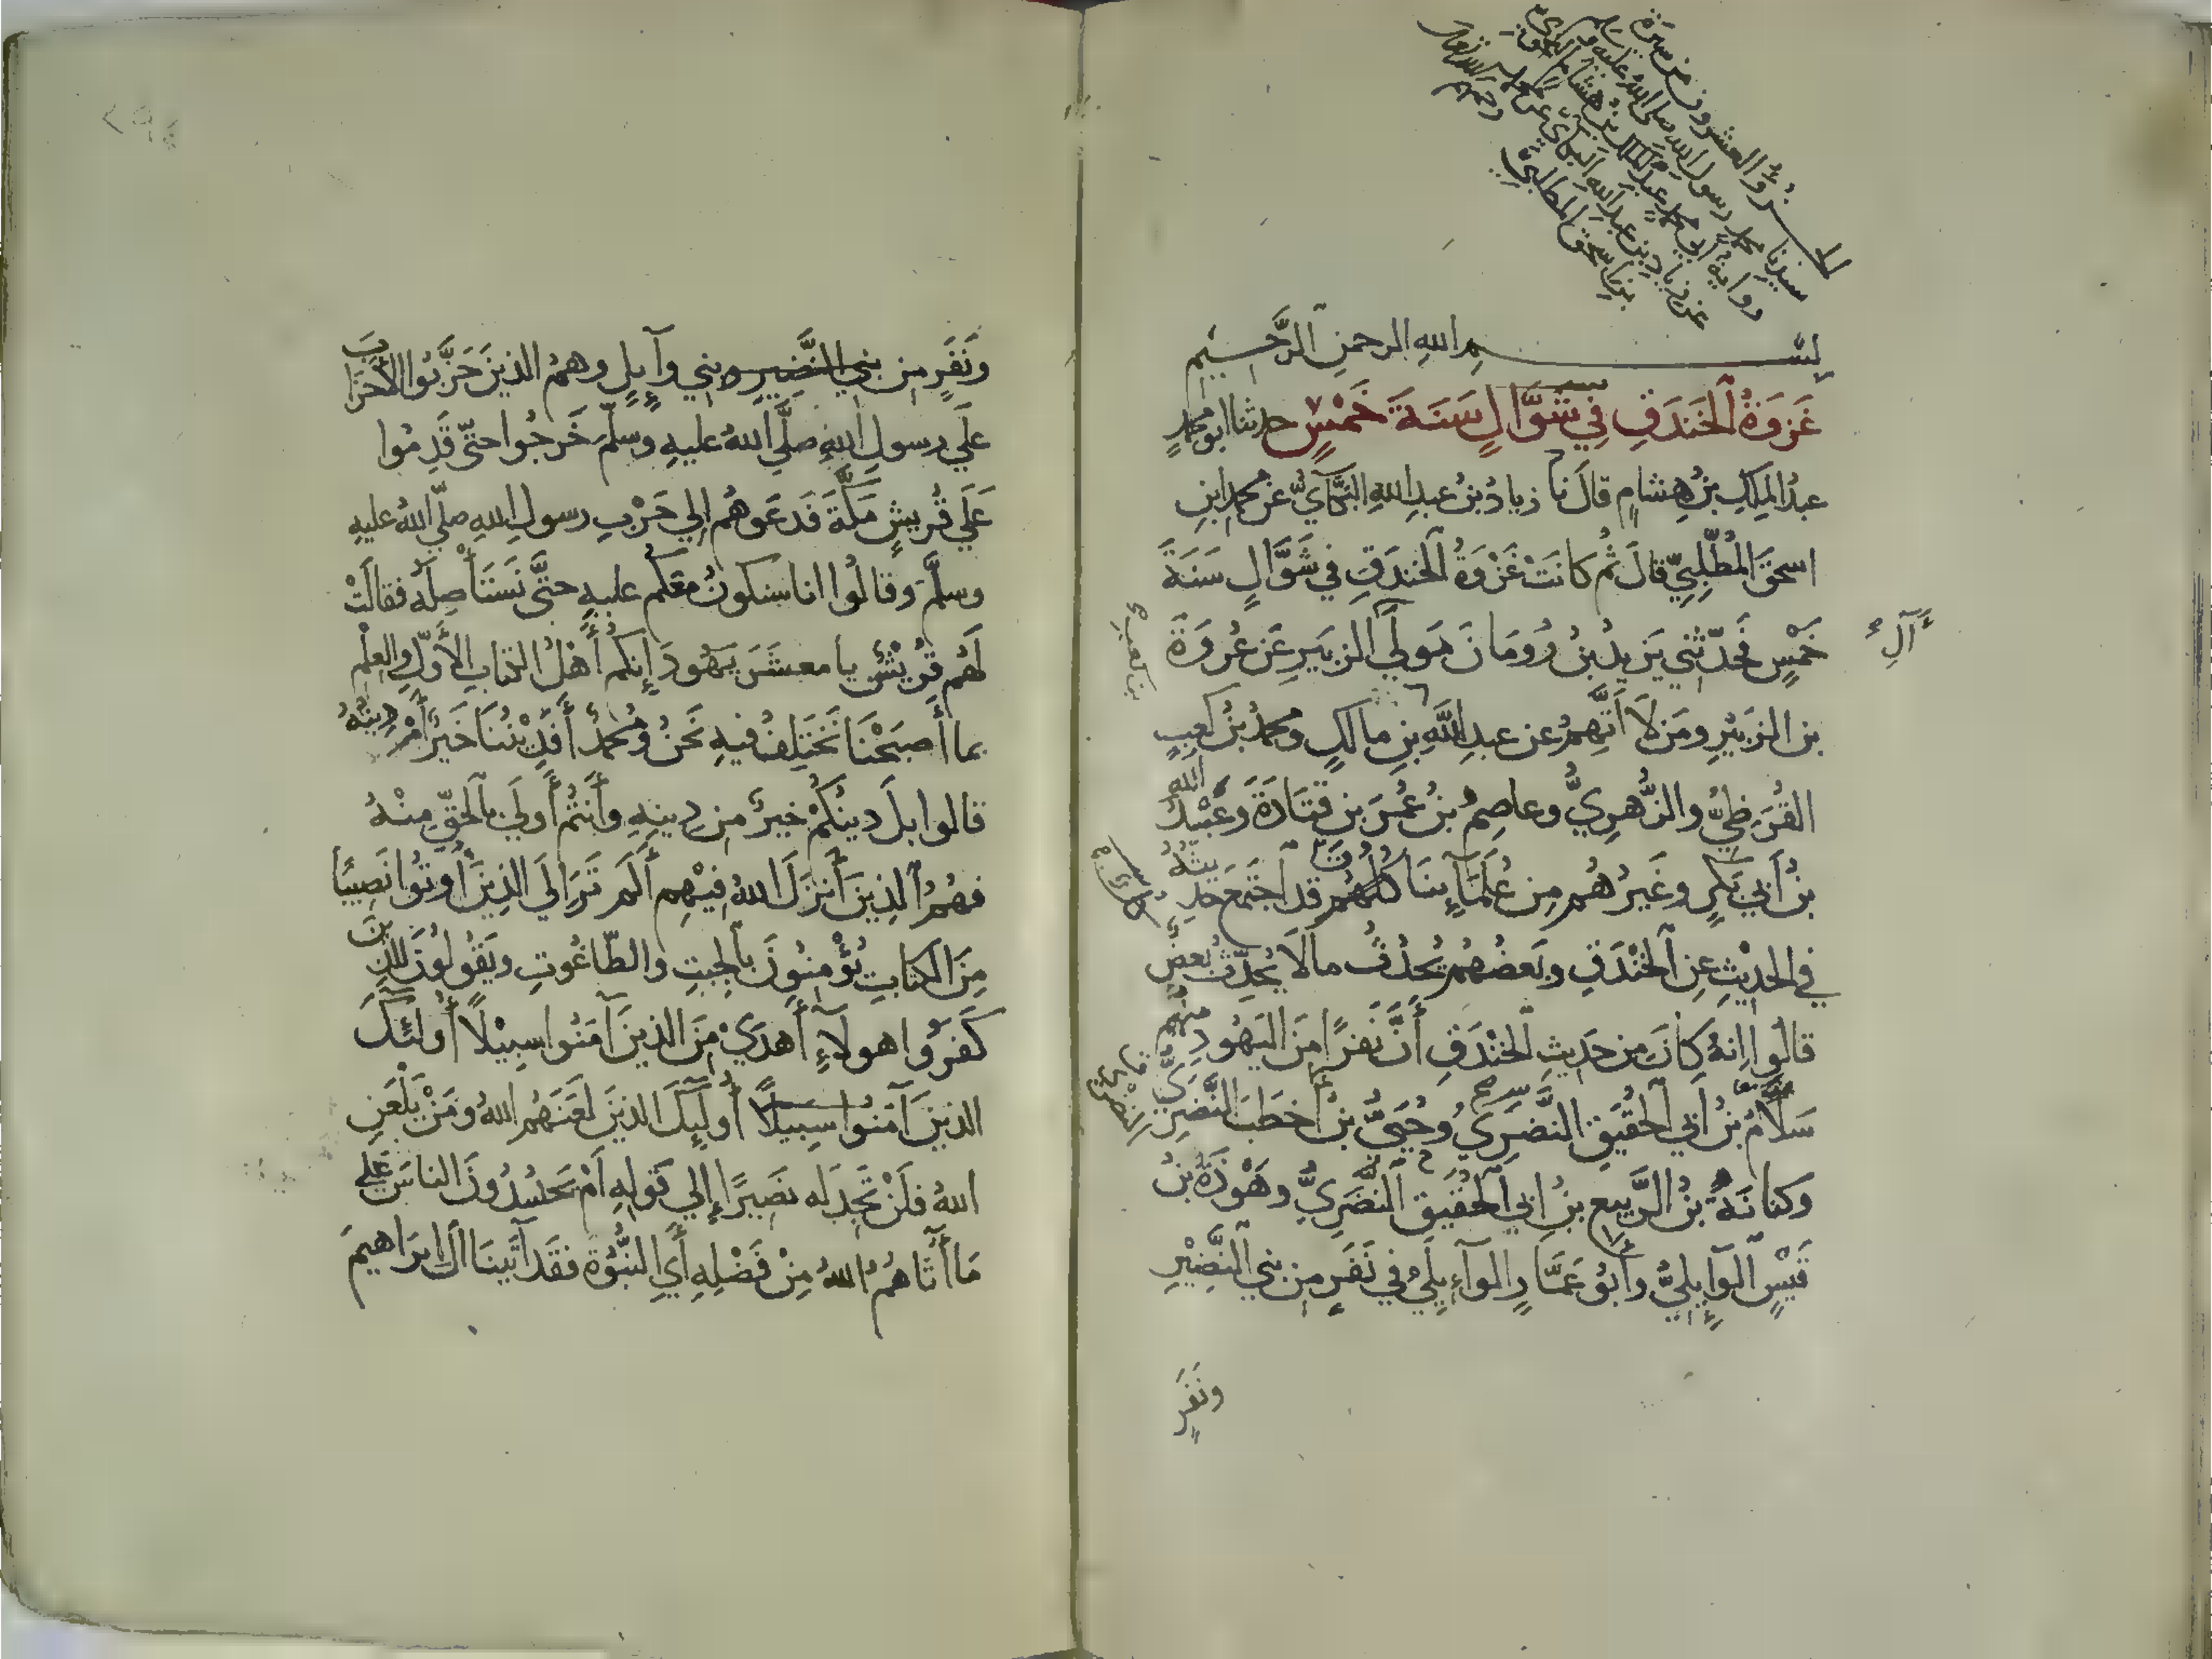 الجزؤ العشرون من سيرة
سيدنا محمد رسول الله صلى الله عليه وسلم
رواية أبي محمد عبد الملك بن هشام
عن زياد بن عبد الله البكائي عن محمد
بن اسحق المطلبي
رحمهم الله تعالى
بسم الله الرحمن الرحيم
غَزْوَةُ الخَنْدَقِ فِي شَوَّالٍ سَنَةَ خَمْسٍ حدثنا ابو محمدٍ
عبدُ المَلِكِ بنُ هِشامٍ قالَ نا زيادُ بنُ عبدِ اللهِ البَكَّآيُّ عن محمدِ ابنِ
اسحقَ المُطَّلِبِيِّ قالَ ثُم كانَتْ غَزْوَةُ الخندَقِ في شَوَّالٍ سَنَةَ
خَمْسٍ فَحَدّثني يَزيدُ بنُ رُومَانَ مَولَي الزبَيرِ عَن عُروَةَ
آلِ
بن الزبَيْرِ ومَن لَا أتَّهِمُ عن عبدِ اللَّهِ بنِ مالكٍ ومحمدُ بنُ كعبٍ
بن كعب
القُرَظِيُّ والزُّهرِيُّ وعاصِمُ بنُ عُمَرَ بنِ قتَادَةَ وعَبْدُ الله
بنُ أبي بَكرٍ وغَيرُهُم مِن عُلَمَآئِنَا كلُّهُم قد اجتَمَعَ حديثُهُ
في الحديْثِ عنِ الخَنْدَقِ وبَعضُهُم يُحَدِّثُ مالَا يُحَدِّثُ بعضٌ
قالُوا إنهُ كانَ مِن حَديثِ الخَنْدَقِ أنَّ نفرًا مِنَ اليَهُودِ منهم
سَلَّامُ بنُ أبي الحُقَيقِ النَّضَرِيُّ وحُيَيُّ بنُ أخطَبَ النَّضَرِيُّ
وكنانَةُ بنُ الرَّبيعِ بنِ ابي الحُقَيقِ النَّضَرِيُّ وهَوْذَةُ بنُ
قَيْسٍ الوَآيِلِيُّ وأبُو عَمَّارٍ الوآيِلِيُّ في نَفَرٍ مِن بَني النَّضِيْرِ
ونَفَرٍ
ونَفَرٍ مِن بني النَّضِيرِ وبني وآيلٍ وهمُ الذينَ حَزَّبُوا الأحزابَ
علَي رسولِ اللهِ صلَّي اللهُ عليهِ وسلّمَ خَرجُوا حتّي قَدِمُوا
عَلَي قُريشٍ مَكَّةَ فَدَعَوهُم إلي حَرْبِ رسولِ اللهِ صلّي اللهُ عليهِ
وسلَّم وقالُوا انا سنكونُ معَكُم عليهِ حتَّي نَستَأْصِلَهُ فقالَتْ
لَهُم قُرَيْشٌ يا معشَرَ يَهُودَ إنكُم أَهْلُ الكتابِ الأَوّلِ والعِلْمِ
بما أَصبَحْنَا نَختَلِفُ فيهِ نَحنُ ومُحَمدٌ أَفَدِيْنُنَا خَيرٌ أَمْ دِينُهُ
قالوا بلَ دينُكُمْ خيرٌ مِن دِينِهِ وأَنتُم أَولَي بالحَقِّ مِنْهُ
فهُمُ الذِينَ أَنزَلَ اللهُ فِيْهِم أَلَم تَرَ إلَي الذِينَ أُوتُوا نَصِيبًا
مِنَ الكتابِ يُؤْمِنُونَ بالجِبتِ والطّاغُوتِ ويَقُولُونَ للذينَ
كَفَرُوا هولآءِ أَهدَيْ مِنَ الذينَ آمَنُوا سبِيْلًا أُولئِكَ
الذينَ آمَنُوا سبِيلًا أُولَئِكَ الذينَ لَعَنَهُم اللهُ ومَنْ يَلْعَنِ
اللهُ فلَنْ تَجِدَ لَه نصَيِرًا إلي قَولِهِ أَمْ يَحسُدُونَ الناسَ عَلي
مَا أَتَاهُمُ اللهُ مِنْ فَضْلِهِ أَيِ النُّبُوّةِ فَقَد آتَينَا آلَ إبرَاهيمَ